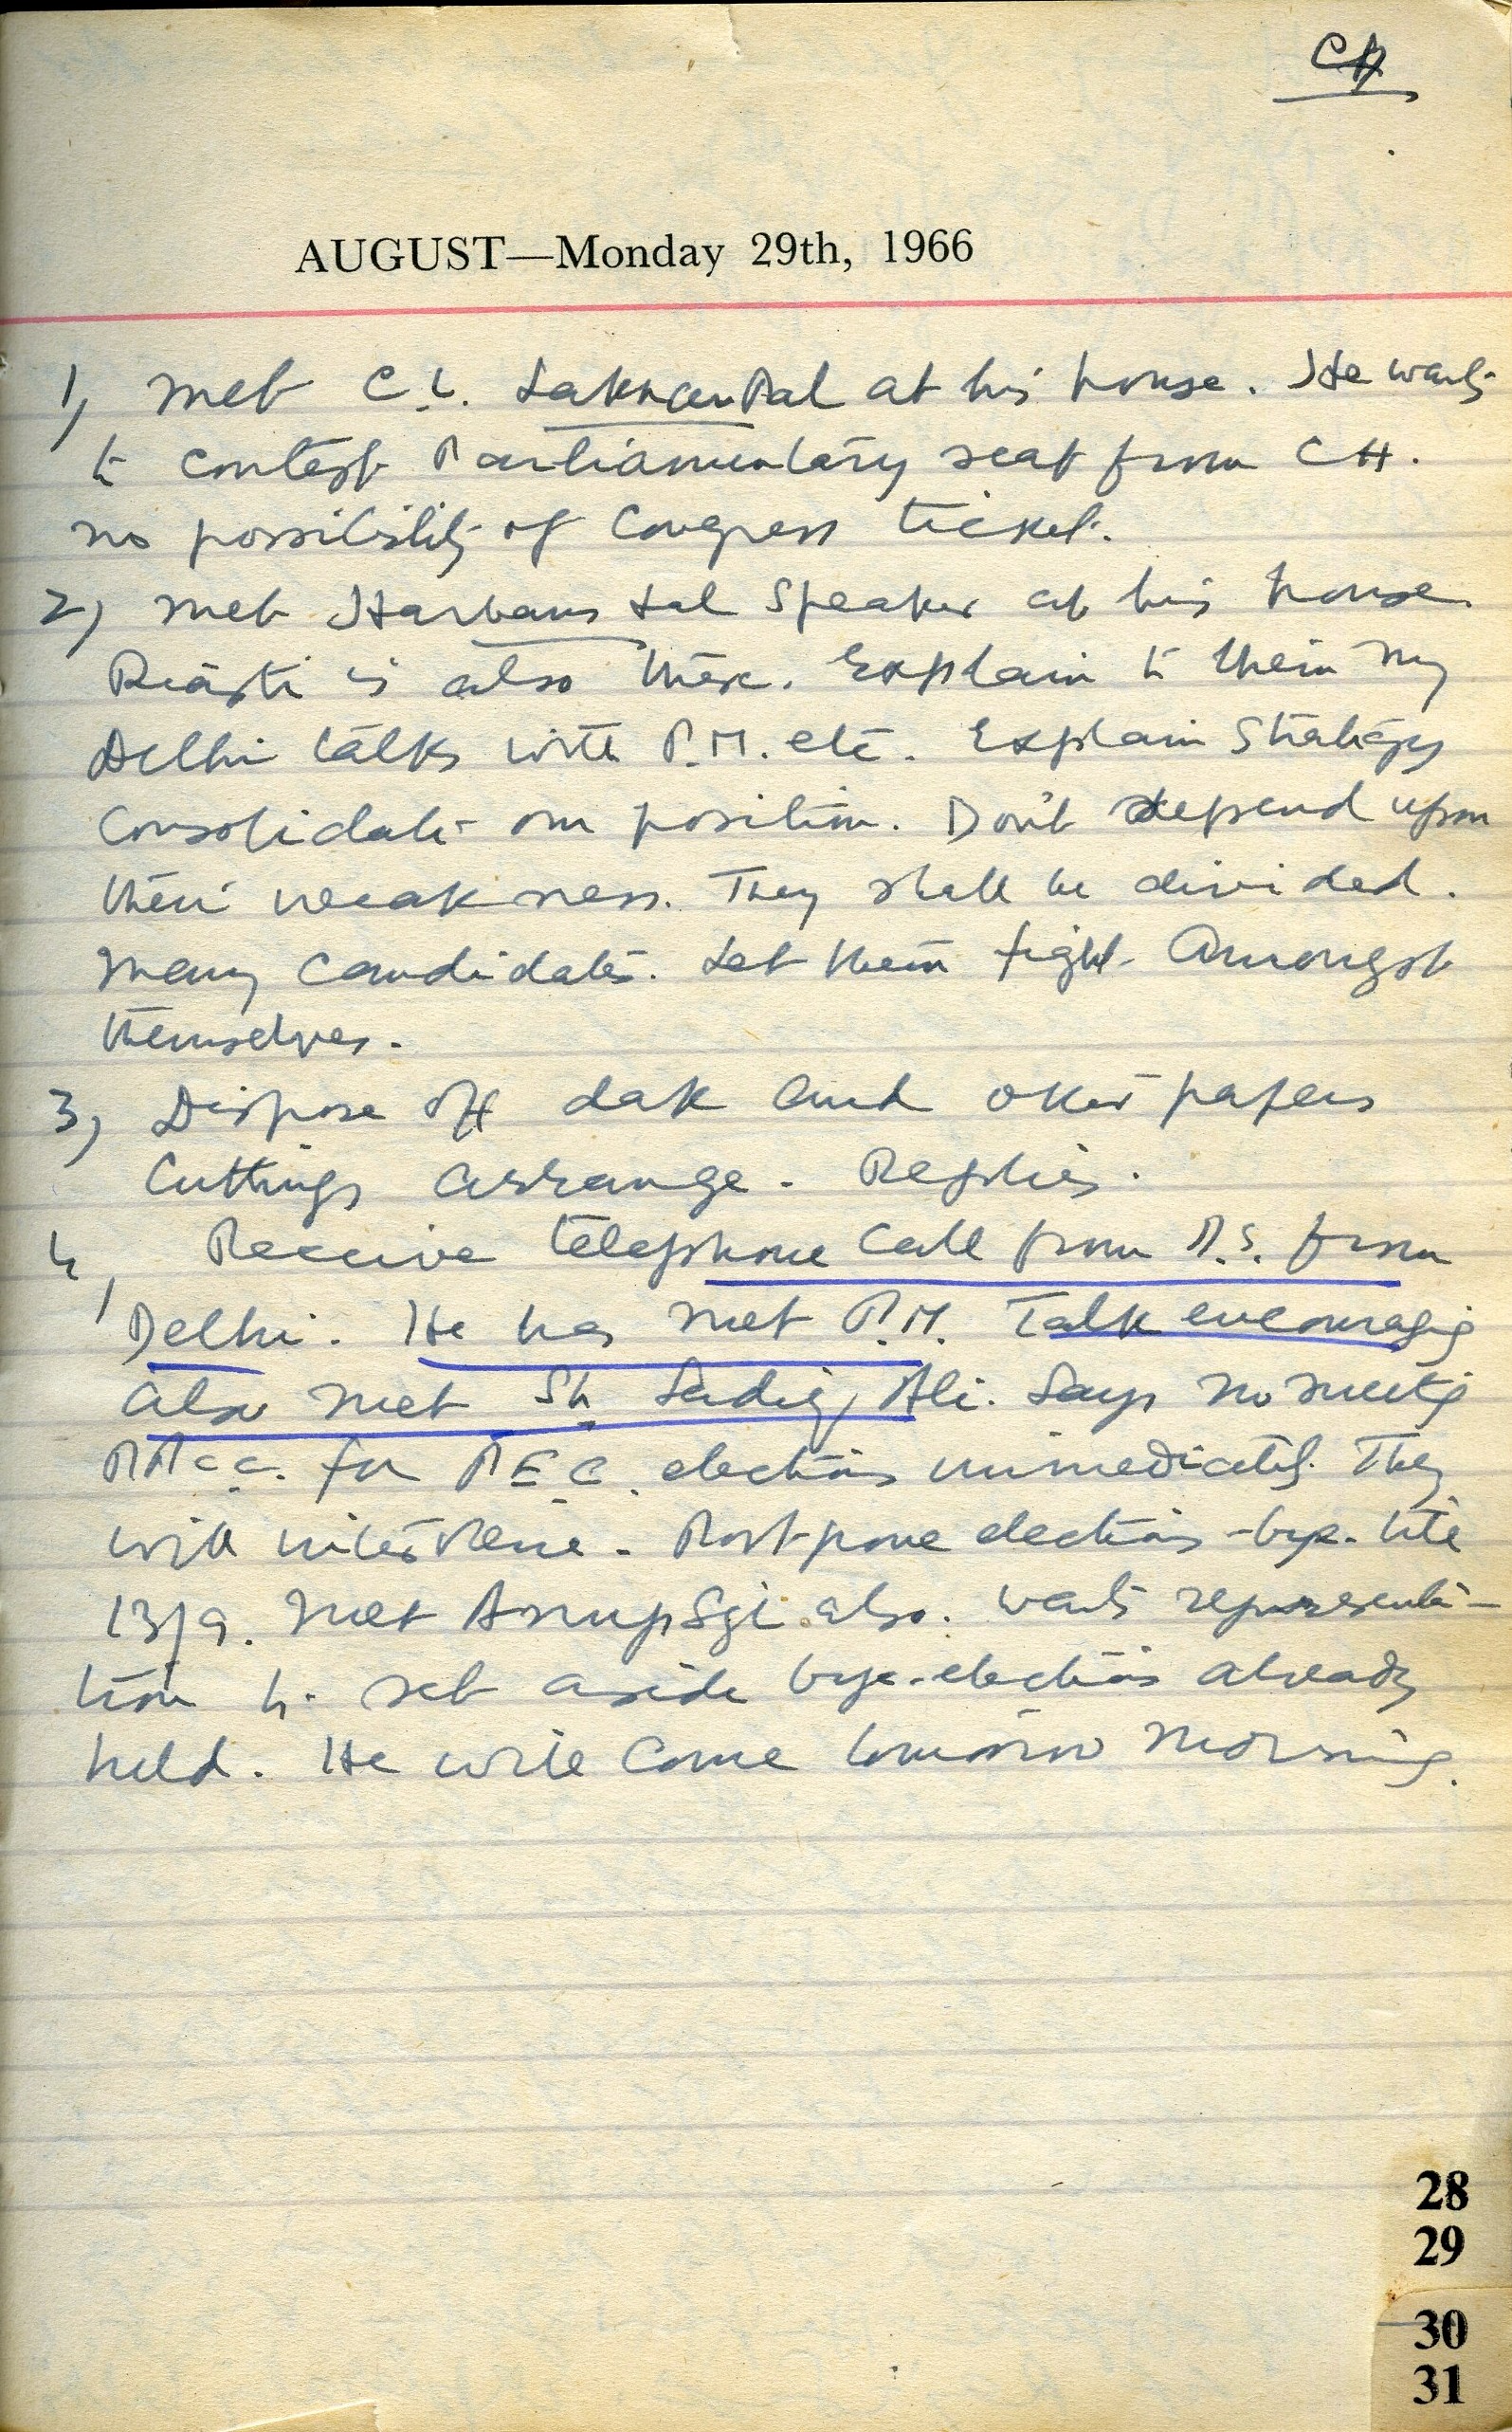 CH
AUGUST—Monday 29th, 1966
1) Met C.L. at his house. He wants
to contest Parliamentary seat from CH.
no possibility of Congress ticket.
2) Met Harbans Lal Speaker at his house.
is also there. Explain to them my
Delhi talks with P.M. etc. Explain Strategy
Consolidate our position. Don't depend upon
their weakness. They shall be divided.
Many Candidates. Let them fight Amongst
themselves.
3) Dispose off dak and other papers
Cuttings arrange. Replies.
4) Receive telephone Call from P.S. from
Delhi. He has met P.M. Talk encouraging
also met Sh Sadiq Ali. Says no meeting
PPCC. for P.E.C. elections immediately. They
will intervene. Postpone elections -bye- till
13/9. Met also. wants representa-
tion to set aside bye-elections already
held. He will Come tomorrow Morning.
28
29
30
31